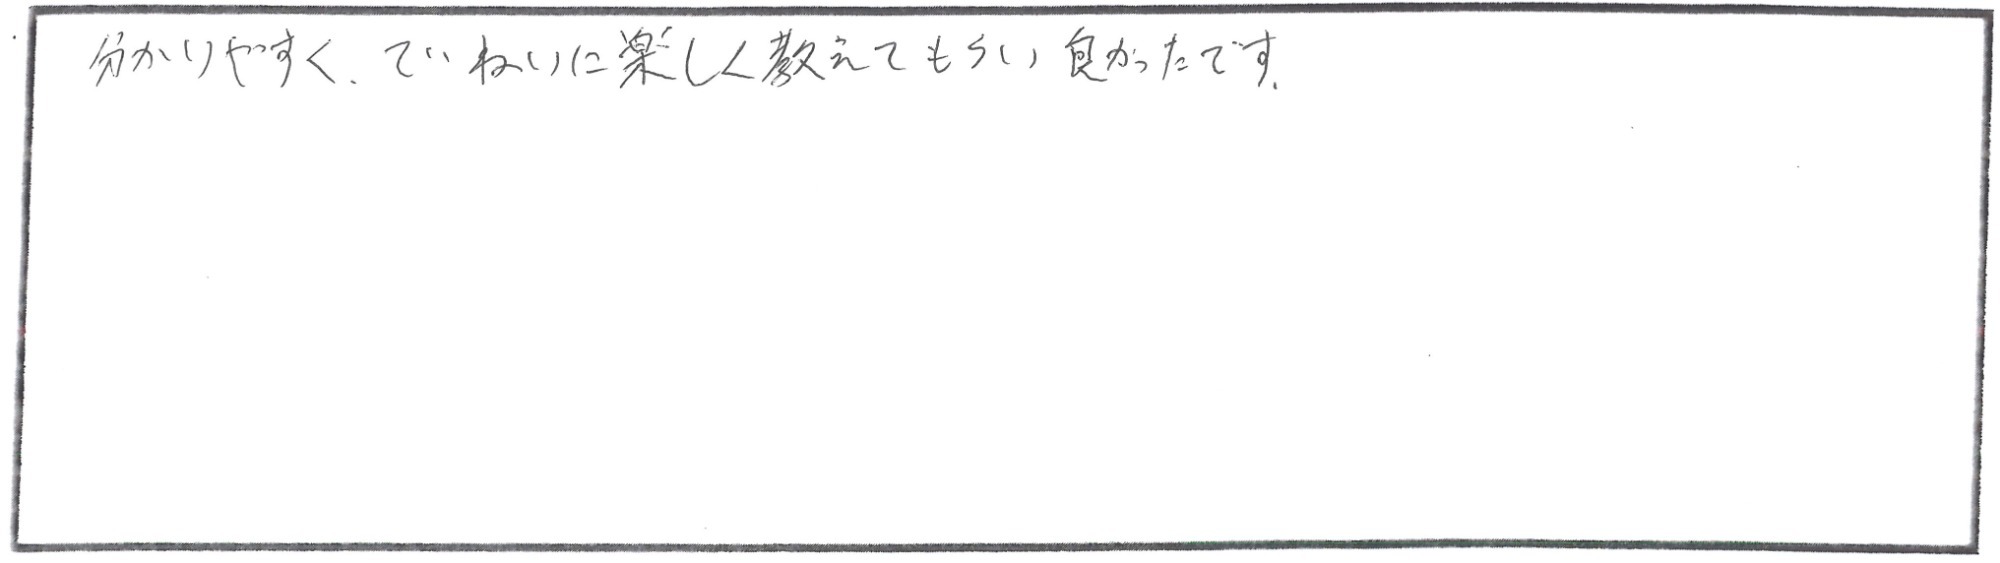 分かりやすく、ていねいに楽しく教えてもらい良かったです。